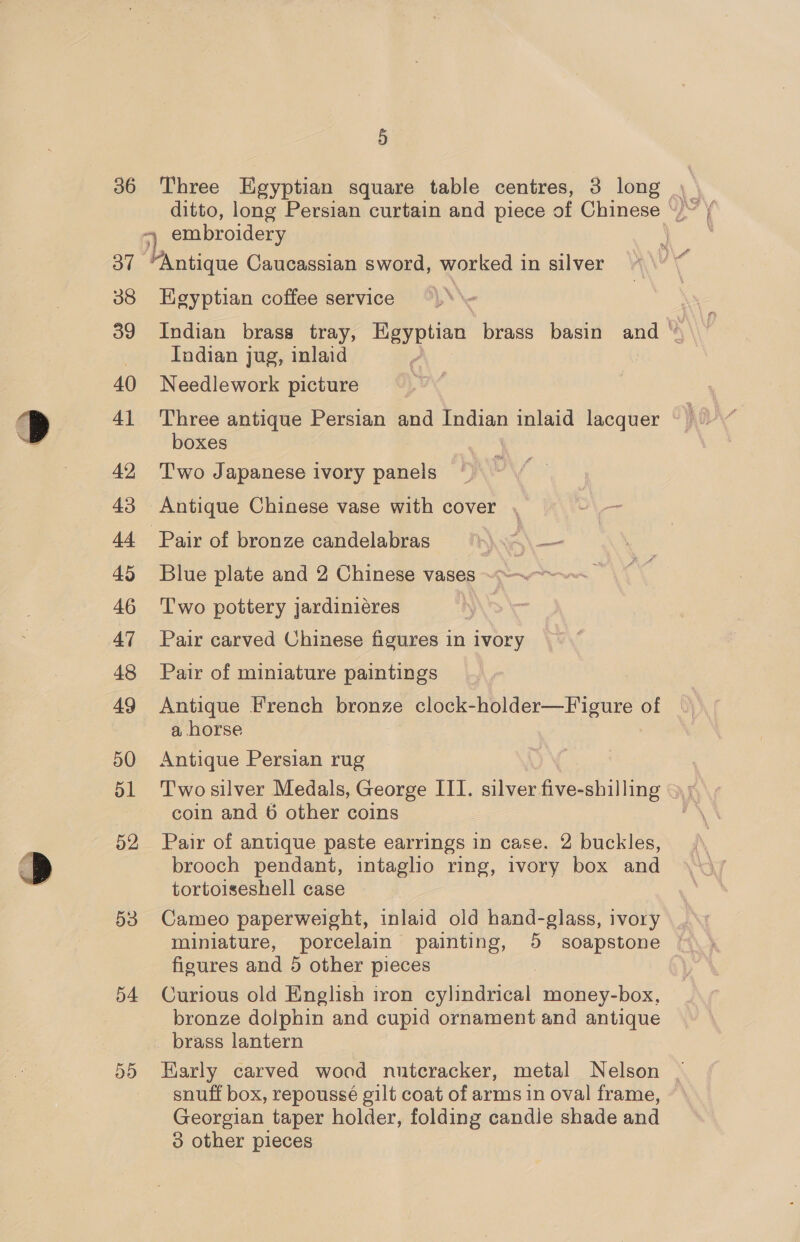 5
36 Three Egyptian square table centres, 3 long
ditto, long Persian curtain and piece of Chinese
embroidery
37 Antique Caucassian sword, worked in silver
38 Egyptian coffee service
39 Indian brass tray, Egyptian brass basin and
Indian jug, inlaid
40 Needlework picture
41 Three antique Persian and Indian inlaid lacquer
boxes
42 Two Japanese ivory panels
43 Antique Chinese vase with cover
44 Pair of bronze candelabras
45 Blue plate and 2 Chinese vases
46 Two pottery jardinières
47 Pair carved Chinese figures in ivory
48 Pair of miniature paintings
49 Antique French bronze clock-holder—Figure of
a horse
50 Antique Persian rug
51 Two silver Medals, George III. silver five-shilling
coin and 6 other coins
52 Pair of antique paste earrings in case. 2 buckles,
brooch pendant, intaglio ring, ivory box and
tortoiseshell case
53 Cameo paperweight, inlaid old hand-glass, ivory
miniature, porcelain painting, 5 soapstone
figures and 5 other pieces
54 Curious old English iron cylindrical money-box,
bronze dolphin and cupid ornament and antique
brass lantern
55 Early carved wood nutcracker, metal Nelson
snuff box, repoussé gilt coat of arms in oval frame,
Georgian taper holder, folding candle shade and
3 other pieces